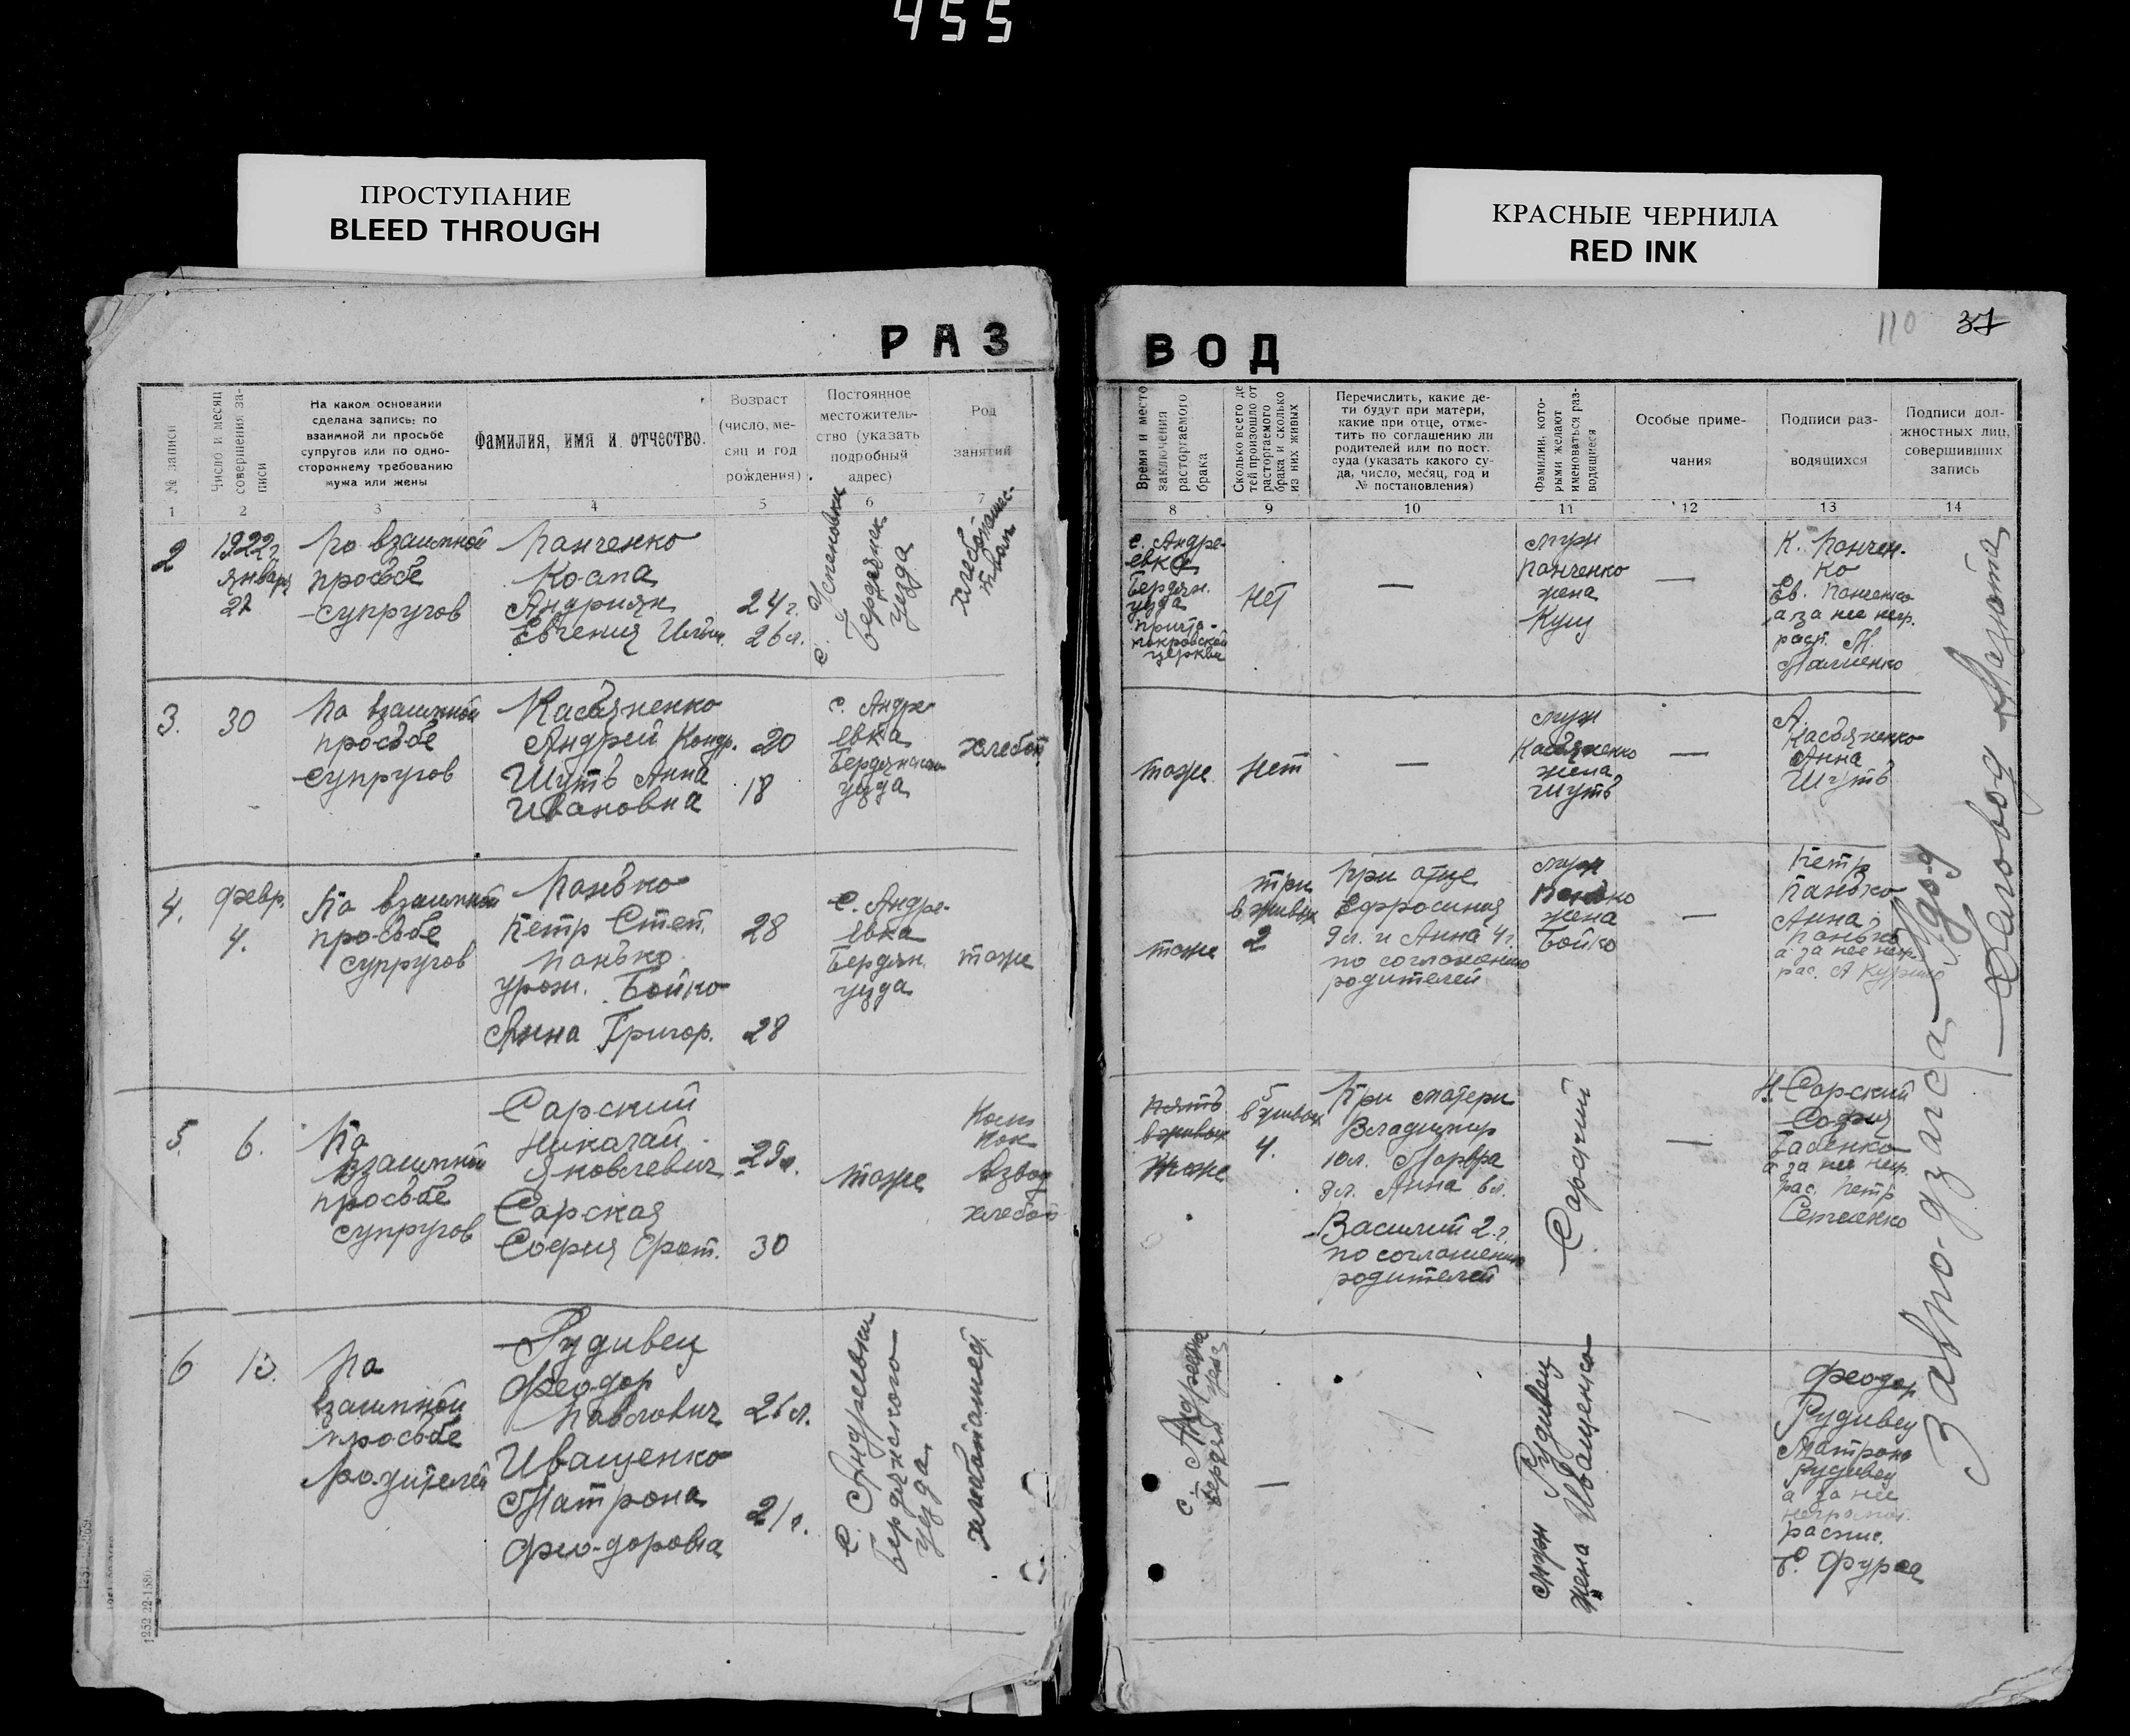 455
ПРОСТУПАНИЕ
BLEED THROUGH
КРАСНЫЕ ЧЕРНИЛА
RED INK
110 37
РАЗ
ВОД
№ записи
Число и месяц
совершения за-
писи
На каком основании
сделана запись: по
взаимной ли просьбе
супругов или по одно-
стороннему требованию
мужа или жены
Фамилия, имя и отчество.
Возраст
(число, ме-
сяц и год
рождения)
Постоянное
местожитель-
ство (указать
подробный
адрес)
Род
занятий
1 2 3 4 5 6 7
Время и место
заключения
расторгаемого
брака
Сколько всего де
тей произошло от
расторгаемого
брака и сколько
из них живых
Перечислить, какие де-
ти будут при матери,
какие при отце, отме-
тить по соглашению ли
родителей или по пост.
суда (указать какого су-
да, число, месяц, год и
№ постановления)
Фамилии, кото-
рыми желают
именоваться раз-
водящиеся
Особые приме-
чания
Подписи раз-
водящихся
Подписи дол-
жностных лиц,
совершивших
запись
8 9 10 11 12 13 14
2
1922 г.
января
27
По взаимной
просьбе
супругов
Панченко
Андриян
Евгения
24 г.
26 л.
с. Успеновки
Бердянск.
уезда
с. Андре-
евка
Бердян.
уезда
покровской
церкви
нет
—
муж
Панченко
жена
Кущ
—
К. Панчен-
ко
Ев. Панченко
а за нее негр.
расп. М.
3.
30
По взаимной
просьбе
супругов
Касьяненко
Андрей Кондр.
Шуть Анна
Ивановна
20
18
с. Андре
евка
Бердянского
уезда
хлебоп
тоже
нет
—
муж
Касьяненко
жена
Шуть
—
А.
Касьяненко
Анна
Шуть
4.
февр.
4.
По взаимной
просьбе
супругов
Панько
Петр Степ.
Панько
урож. Бойко
Анна Григор.
28
28
с. Андре-
евка
Бердян.
уезда
тоже
тоже
три
в живых
2
При отце
Ефросиния
9 л. и Анна 4 г.
по соглашению
родителей
муж
Панько
жена
Бойко
—
Петр
Панько
Анна
Панько
а за нее негр.
рас. А
5.
6.
По
взаимной
просьбе
супругов
Сарский
Николай
Яковлевич
Сарская
София
29 л.
30
тоже
взвод
хлебоп
пять
в живых
тоже
5
в живых
4.
При матери
Владимир
10 л.
9 л. Анна 6 л.
Василий 2 г.
по соглашению
родителей
—
Н. Сарский
София
а за нее негр.
рас. Петр
6
13.
По
взаимной
просьбе
родителей
Рудивец
Феодор
Павлович
Иващенко
Матрона
Феодоровна
21 л.
с. Андреевки
Бердянского
уезда
с. Андреевка
Бердян. уезд
—
муж Рудивец
жена Иващенко
Феодор
Рудивец
Матрона
Рудивец
а за нее
неграмот.
распис.
Фурса
1252 22-1580.